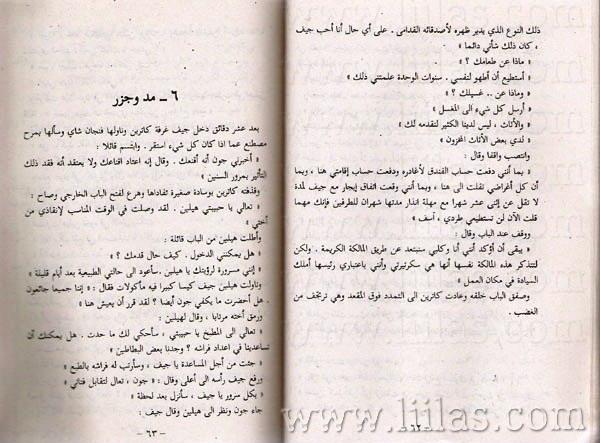 ذلك النوع الذي يدير ظهره لأصدقائه القدامى . على أي حال أنا أحب جيف
، كان ذلك شأني دائما »
« ماذا عن طعامك ؟ »
« أستطيع أن أطهو لنفسي . سنوات الوحدة علمتني ذلك »
« وماذا عن .. غسيلك ؟ »
« أرسل كل شيء الى المغسل »
« والأثاث ، ليس لدينا الكثير لتقدمه لك »
« لدي بعض الأثاث المخزون »
وانتصب واقفا وقال :
« بما أنني دفعت حساب الفندق لأغادره ودفعت حساب إقامتي هنا ، وبما
أن كل أغراضي نقلت الى هنا ، وبما أنني وقعت اتفاق إيجار مع جيف لمدة
لا تقل عن إثنى عشر شهرا مع مهلة انذار مدتها شهران للطرفين فإنك مهما
قلت الآن لن تستطيعي طردي ، آسف »
ووقف عند الباب وقال :
« يبقى أن أؤكد أنني أنا وكلبي سنبتعد عن طريق المالكة الكريمة . ولكن
لتتذكر هذه المالكة نفسها أنها هي سكرتيرتي وأنني باعتباري رئيسها أملك
السيادة في مكان العمل »
وصفق الباب خلفه وعادت كاترين الى التمدد فوق المقعد وهي ترتجف من
الغضب .
٦٢
٦ - مد وجزر
بعد عشر دقائق دخل جيف غرفة كاترين وناولها فنجان شاي وسألها بمرح
مصطنع عما اذا كان كل شيء استقر . وابتسم قائلا :
« أخبرني جون أنه أقنعك . وقال إنه اعتاد اقناعك ولا يعتقد أنه فقد ذلك
التأثير بمرور السنين »
وقذفته كاترين بوسادة صغيرة تفاداها وهرع لفتح الباب الخارجي وصاح :
« تعالي يا حبيبتي هيلين . لقد وصلت في الوقت المناسب لإنقاذي من
أختي »
وأطلت هيلين من الباب قائلة :
« هل يمكنني الدخول . كيف حال قدمك ؟ »
« إنني مسرورة لرؤيتك يا هيلين . سأعود الى حالتي الطبيعية بعد أيام قليلة »
وناولت هيلين جيف كيسا كبيرا فيه مأكولات فقال : « إننا جميعا جائعون
. هل أحضرت ما يكفي جون أيضا ؟ لقد قرر أن يعيش هنا »
ورمق أخته مرتابا ، وقال لهيلين :
« تعالي الى المطبخ يا حبيبتي ، سأحكي لك ما حدث . هل يمكنك أن
تساعدينا في اعداد فراشه ؟ وجدنا بعض البطاطين »
« جئت من أجل المساعدة يا جيف ، وسأرتب له فراشه بالطبع »
ورفع جيف رأسه الى أعلى وقال : « جون ، تعال لتقابل فتاتي »
« بكل سرور يا جيف ، سأنزل بعد لحظة »
جاء جون ونظر الى هيلين وقال جيف :
- ٦٣ -
www.liilas.com